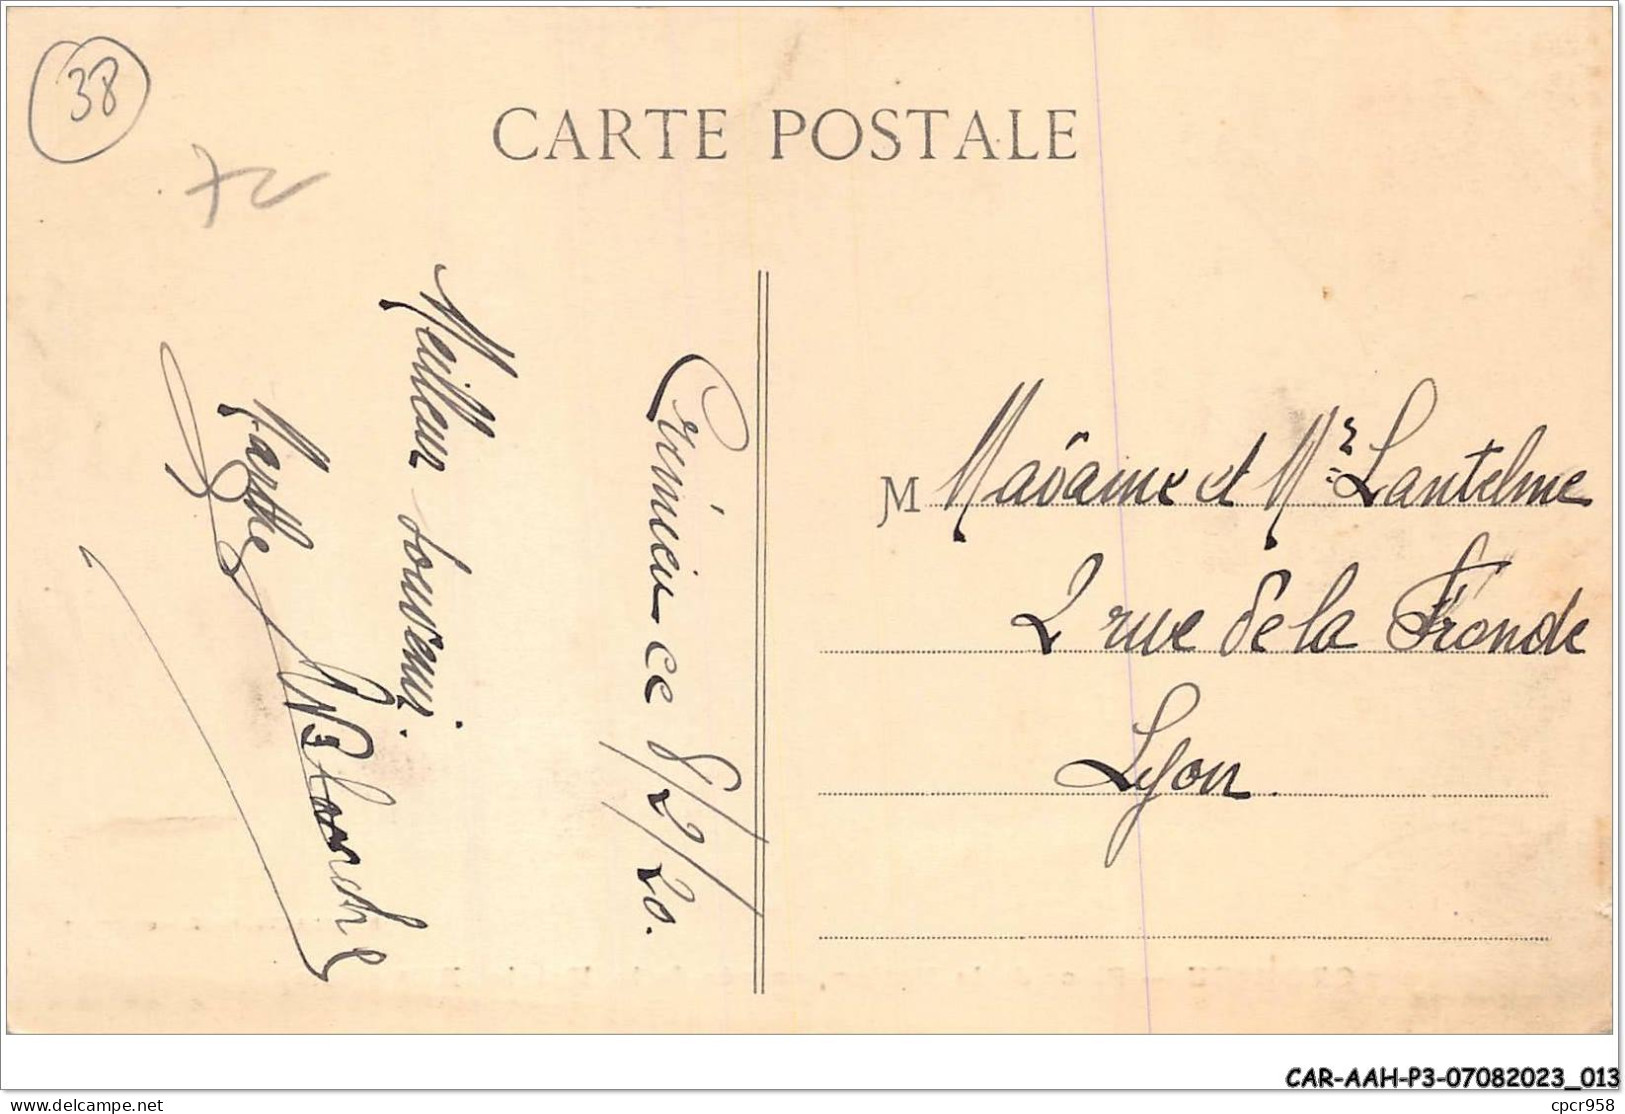 38
72
CARTE POSTALE
Crémieu ce 8/2/20.
Meilleur souvenir.
Marthe Blanch
M Madame et Mr Lantelme
2 rue de la Fronde
Lyon.
CAR-AAH-P3-07082023_013
delcampe.net
cpcr958